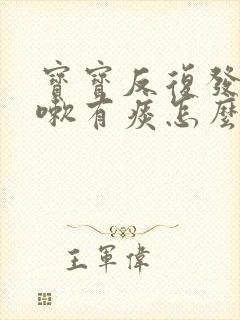 寶寶反復發
嗽有痰怎麼
王軍偉